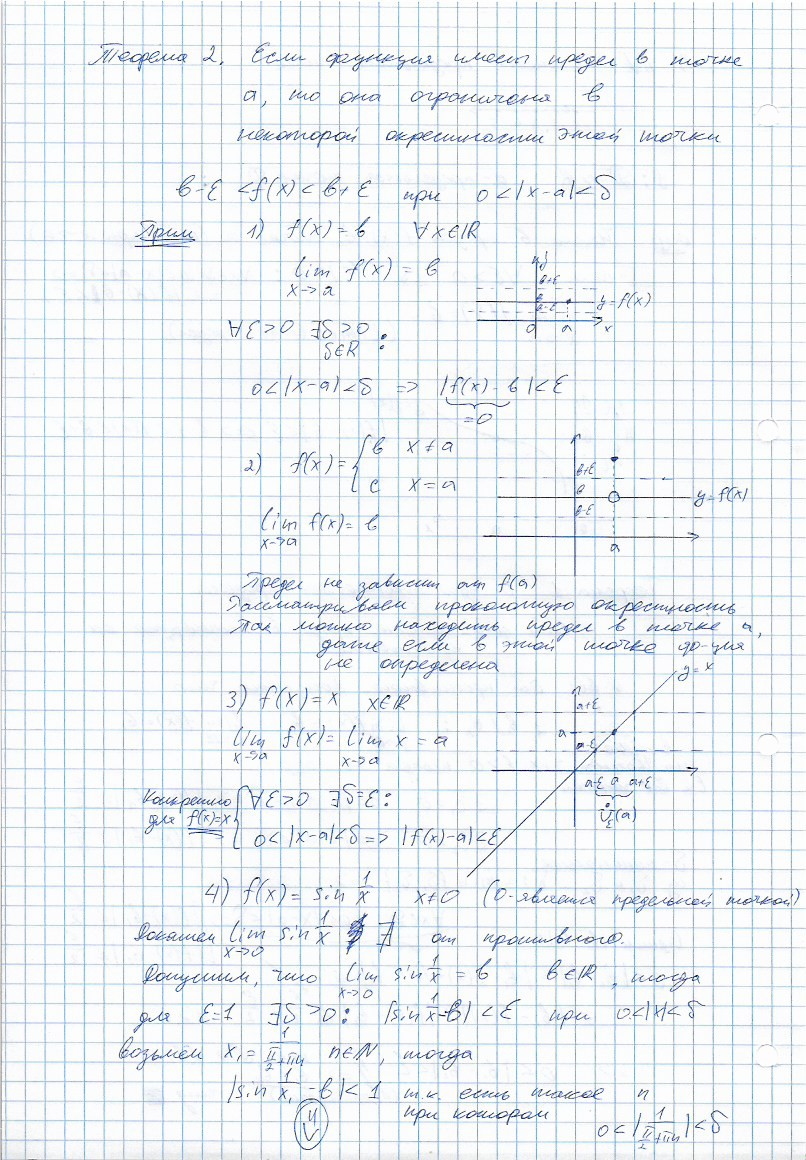 Теорема 2. Если функция имеет предел в точке
a, то она ограничена в
некоторой окрестности этой точки
b-ε < f(x) < b+ε при 0<|x-a|<δ
Прим 1) f(x) = b ∀x∈ℝ
lim f(x) = b
x→a
y
b+ε
b
b-ε
y=f(x)
0 a x
∀ε>0 ∃δ>0 :
δ∈R
0<|x-a|<δ => |f(x) - b|<ε
=0
2) f(x) = { b x≠a
c x=a
lim f(x) = b
x→a
b+ε
b
b-ε
y=f(x)
a
Предел не зависит от f(a)
Рассматриваем проколотую окрестность
Так можно находить предел в точке a,
даже если в этой точке ф-ция
не определена
y=x
3) f(x) = x x∈ℝ
lim f(x) = lim x = a
x→a x→a
a+ε
a
a-ε
a-ε a a+ε
U̇ε(a)
Конкретно для f(x)=x { ∀ε>0 ∃δ=ε :
0<|x-a|<δ => |f(x)-a|<ε
4) f(x) = sin 1/x x≠0 (0-является предельной точкой)
Докажем lim sin 1/x ∄ от противного.
x→0
Допустим, что lim sin 1/x = b b∈ℝ, тогда
x→0
для ε=1 ∃δ>0: |sin 1/x - b| < ε при 0<|x|<δ
возьмем x₁ = 1/(π/2+πn) n∈N, тогда
|sin 1/x₁ - b| < 1 т.к. есть такое n
при котором 0<|1/(π/2+πn)|<δ
4